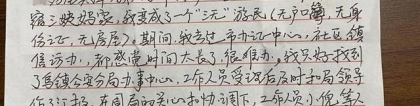 我变成了一个“三无”游民（无户簿，无身
份证，无房屋）。期间，我去过市办证中心，社区，镇
信访办，都感觉时间太长了，很难办。我只好找到
了马镇公安分局办事中心，工作人员受理后及时和局领导
作了汇报，在周局的关心和协调下，工作人员小倪等人